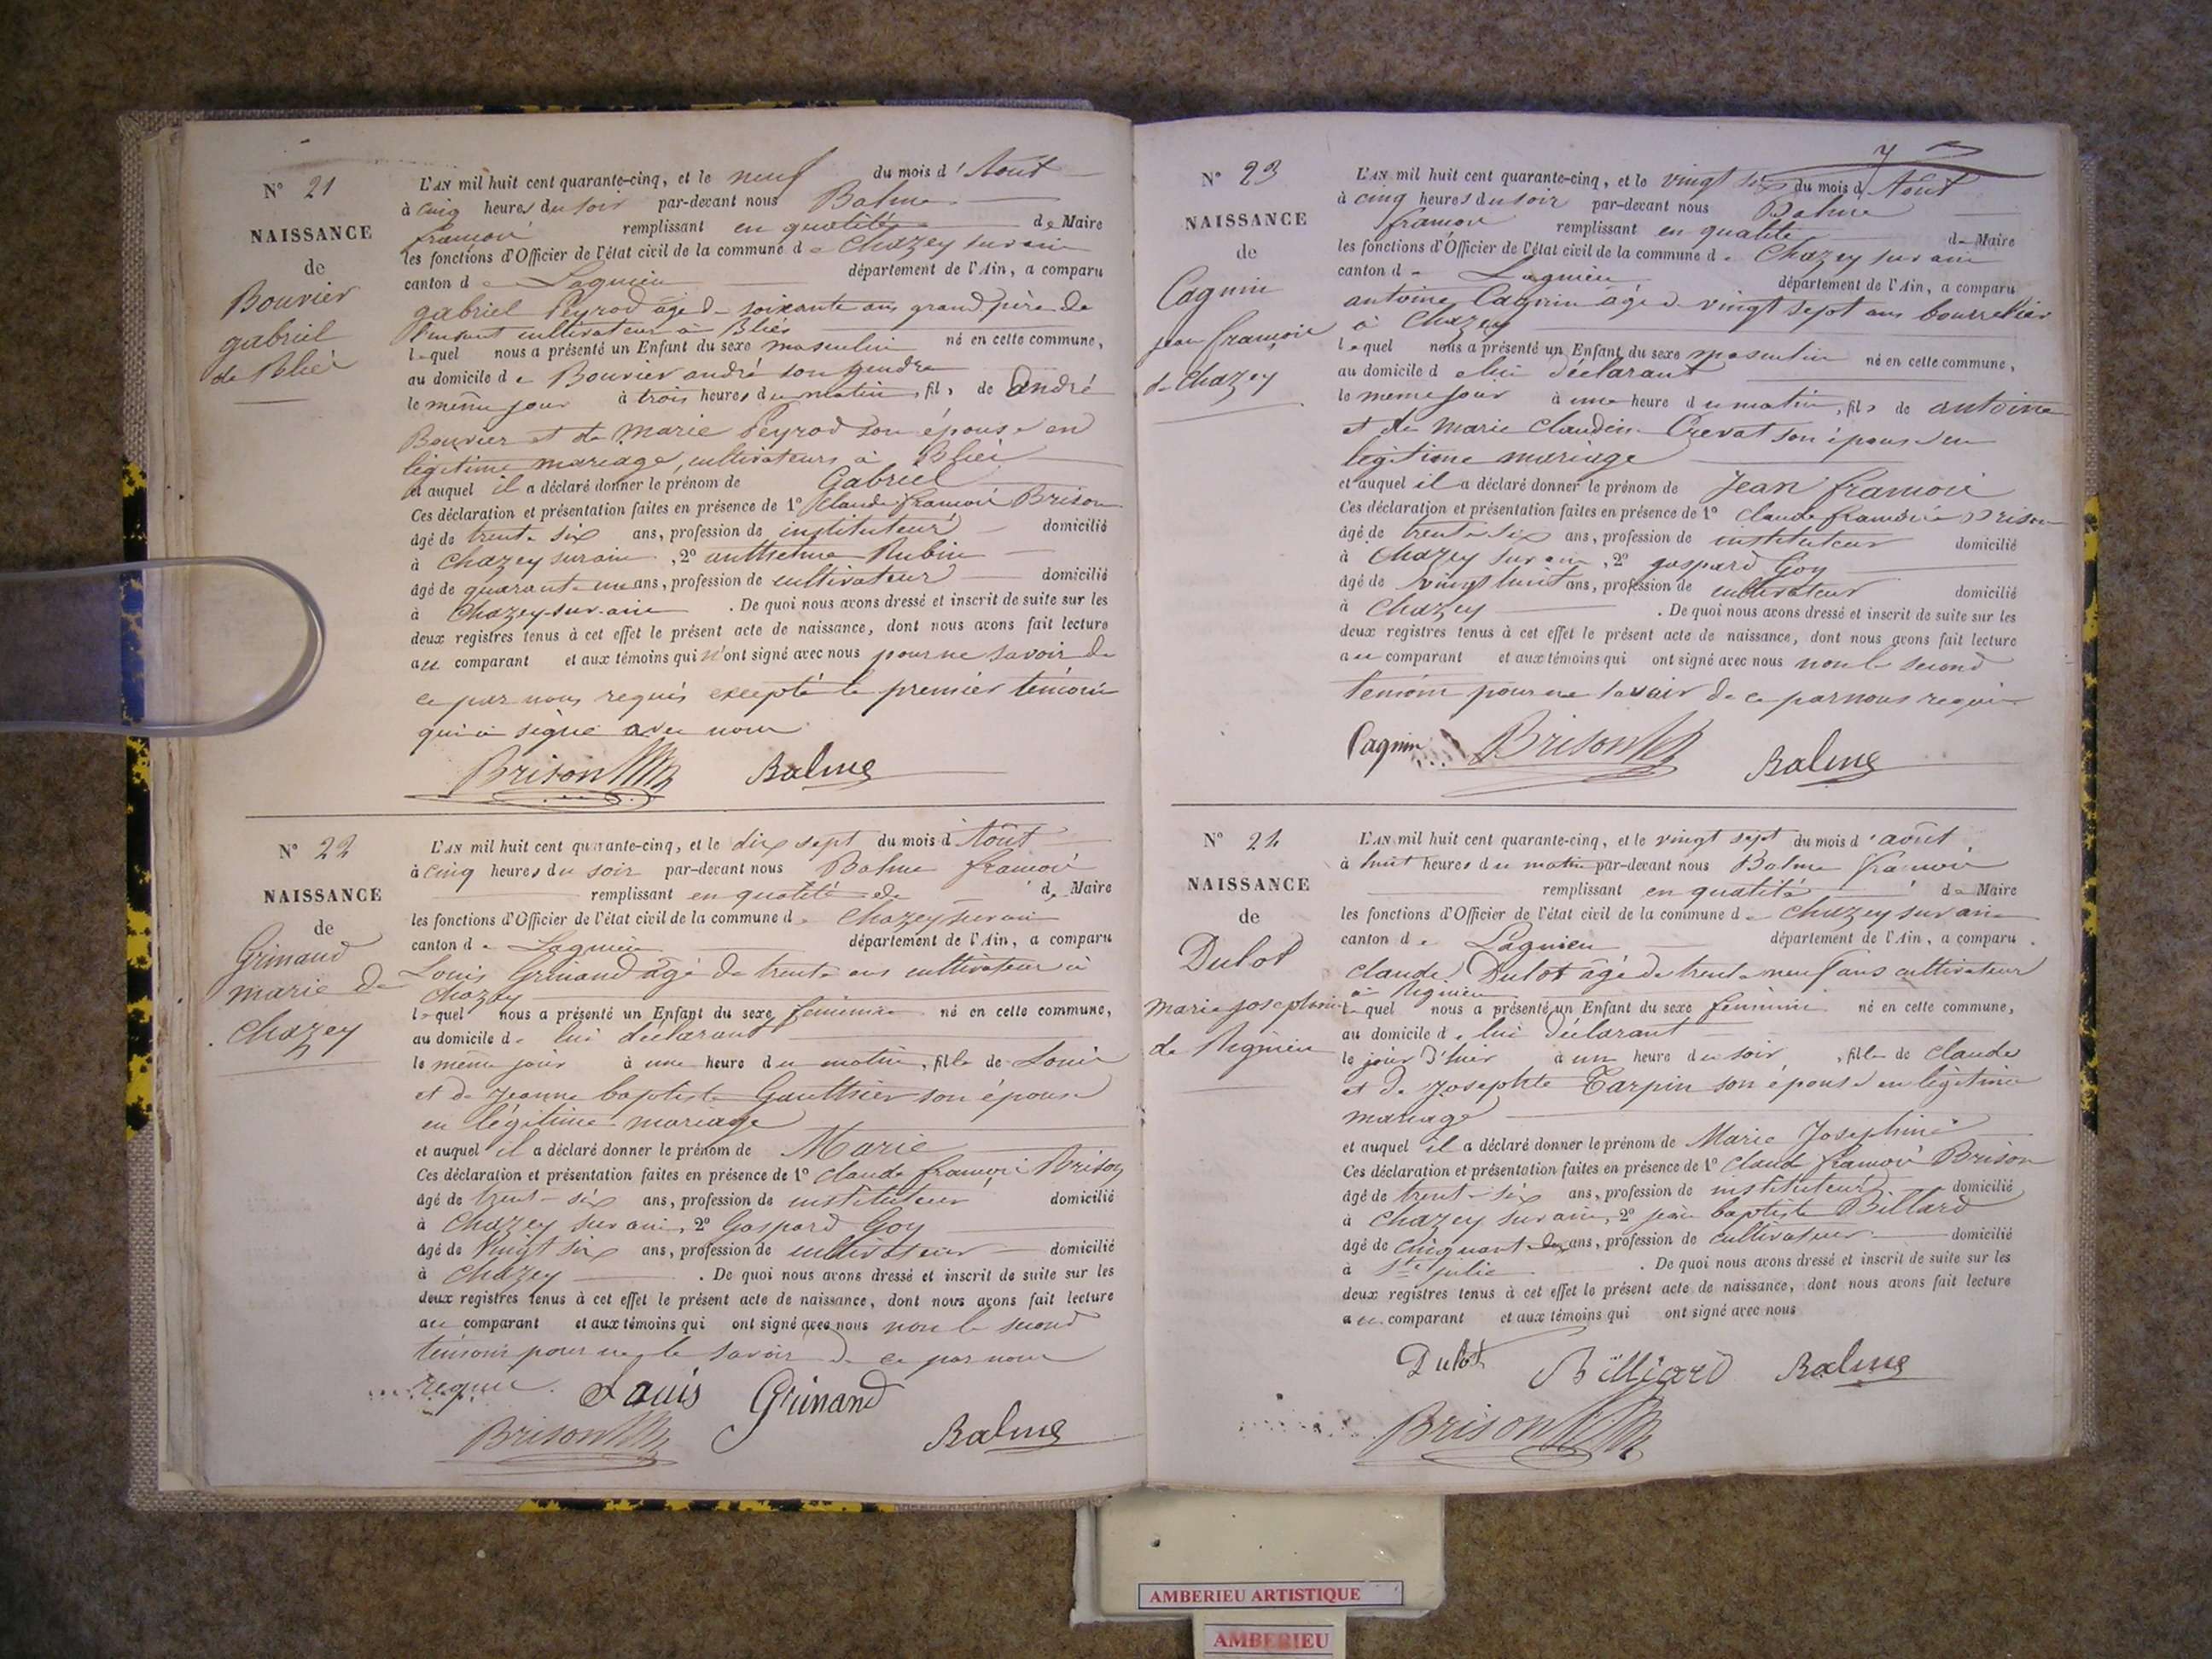 N° 21
NAISSANCE
de
Bouvier
gabriel
de Bliès
L'AN mil huit cent quarante-cinq, et le neuf du mois d'Aout
à cinq heures du soir par-devant nous Balme
francois remplissant en qualité de Maire
les fonctions d'Officier de l'état civil de la commune de Chazey sur ain
canton de Lagnieu département de l'Ain, a comparu
gabriel Peyrod âgé de soixante ans grand père de
l'enfant cultivateur à Bliès
lequel nous a présenté un Enfant du sexe masculin né en cette commune,
au domicile de Bouvier andré son gendre
le même jour à trois heures du matin, fils de André
Bouvier et de Marie Peyrod son épouse en
légitime mariage, cultivateurs à Bliès
et auquel il a déclaré donner le prénom de Gabriel
Ces déclaration et présentation faites en présence de 1° Claude françois Brison
âgé de trente six ans, profession de instituteur domicilié
à Chazey sur ain, 2° anthelme Rubin
âgé de quarante un ans, profession de cultivateur domicilié
à Chazey-sur-ain. De quoi nous avons dressé et inscrit de suite sur les
deux registres tenus à cet effet le présent acte de naissance, dont nous avons fait lecture
au comparant et aux témoins qui n'ont signé avec nous pour ne savoir de
ce par nous requis excepté le premier témoin
qui a signé avec nous
Brison Balme
N° 22
NAISSANCE
de
Grinand
marie de
Chazey
L'AN mil huit cent quarante-cinq, et le dix sept du mois d'Août
à cinq heures du soir par-devant nous Balme francois
remplissant en qualité de de Maire
les fonctions d'Officier de l'état civil de la commune de Chazey sur ain
canton de Lagnieu département de l'Ain, a comparu
Louis Grinand âgé de trente ans cultivateur à
Chazey
lequel nous a présenté un Enfant du sexe féminin né en cette commune,
au domicile de lui déclarant
le même jour à une heure du matin, fille de Louis
et de Jeanne baptiste Gauthier son épouse
en légitime mariage
et auquel il a déclaré donner le prénom de Marie
Ces déclaration et présentation faites en présence de 1° claude françois Brison
âgé de trente six ans, profession de instituteur domicilié
à Chazey sur ain, 2° Gaspard Goy
âgé de vingt six ans, profession de cultivateur domicilié
à Chazey. De quoi nous avons dressé et inscrit de suite sur les
deux registres tenus à cet effet le présent acte de naissance, dont nous avons fait lecture
au comparant et aux témoins qui ont signé avec nous non le second
témoin pour ne le savoir de ce par nous
requis. Louis Grinand
Brison Balme
7
N° 23
NAISSANCE
de
Cagnin
jean françois
de Chazey
L'AN mil huit cent quarante-cinq, et le vingt six du mois d'Août
à cinq heures du soir par-devant nous Balme
francois remplissant en qualité de Maire
les fonctions d'Officier de l'état civil de la commune de Chazey sur ain
canton de Lagnieu département de l'Ain, a comparu
antoine Cagnin âgé de vingt sept ans bourrelier
à Chazey
lequel nous a présenté un Enfant du sexe masculin né en cette commune,
au domicile de lui déclarant
le même jour à une heure du matin, fils de antoine
et de Marie Claudine Crevat son épouse en
légitime mariage
et auquel il a déclaré donner le prénom de Jean francois
Ces déclaration et présentation faites en présence de 1° Claude francois Brison
âgé de trente six ans, profession de instituteur domicilié
à Chazey sur ain, 2° gaspard Goy
âgé de vingt huit ans, profession de cultivateur domicilié
à Chazey. De quoi nous avons dressé et inscrit de suite sur les
deux registres tenus à cet effet le présent acte de naissance, dont nous avons fait lecture
au comparant et aux témoins qui ont signé avec nous non le second
témoin pour ne savoir de ce par nous requis
Cagnin Brison Balme
N° 24
NAISSANCE
de
Dulot
marie josephine
de Rignieu
L'AN mil huit cent quarante-cinq, et le vingt sept du mois d'août
à huit heures du matin par-devant nous Balme francois
remplissant en qualité de Maire
les fonctions d'Officier de l'état civil de la commune de Chazey sur ain
canton de Lagnieu département de l'Ain, a comparu
claude Dulot âgé de trente neuf ans cultivateur
à Rignieu
lequel nous a présenté un Enfant du sexe féminin né en cette commune,
au domicile de lui déclarant
le jour d'hier à une heure du soir, fille de claude
et de Josephte Tarpin son épouse en légitime
mariage
et auquel il a déclaré donner le prénom de Marie Josephine
Ces déclaration et présentation faites en présence de 1° Claude francois Brison
âgé de trente six ans, profession de instituteur domicilié
à Chazey sur ain, 2° jean baptiste Billard
âgé de cinquante ans, profession de cultivateur domicilié
à Ste julie. De quoi nous avons dressé et inscrit de suite sur les
deux registres tenus à cet effet le présent acte de naissance, dont nous avons fait lecture
au comparant et aux témoins qui ont signé avec nous
Dulot Billiard Balme
Brison
AMBERIEU ARTISTIQUE
AMBERIEU